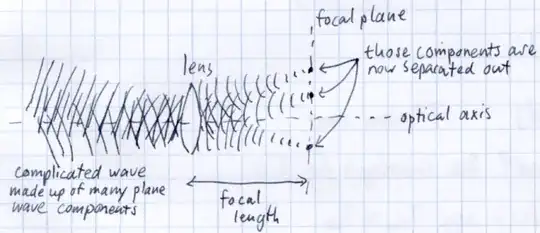 focal plane
those components are
now separated out
lens
optical axis
complicated wave
made up of many plane
wave components
focal
length